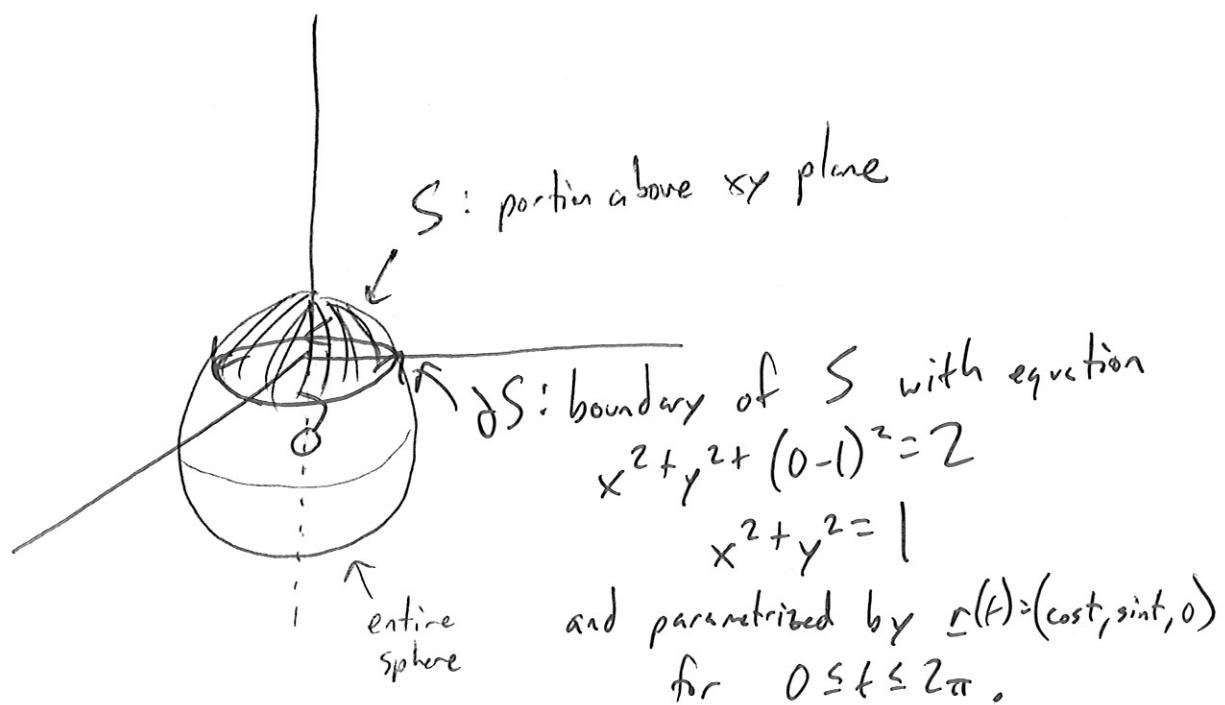 S: portion above xy plane
∂S: boundary of S with equation
x²+y²+(0-1)²=2
x²+y²=1
and parametrized by r(t)=(cost, sint, 0)
for 0≤t≤2π.
entire
sphere